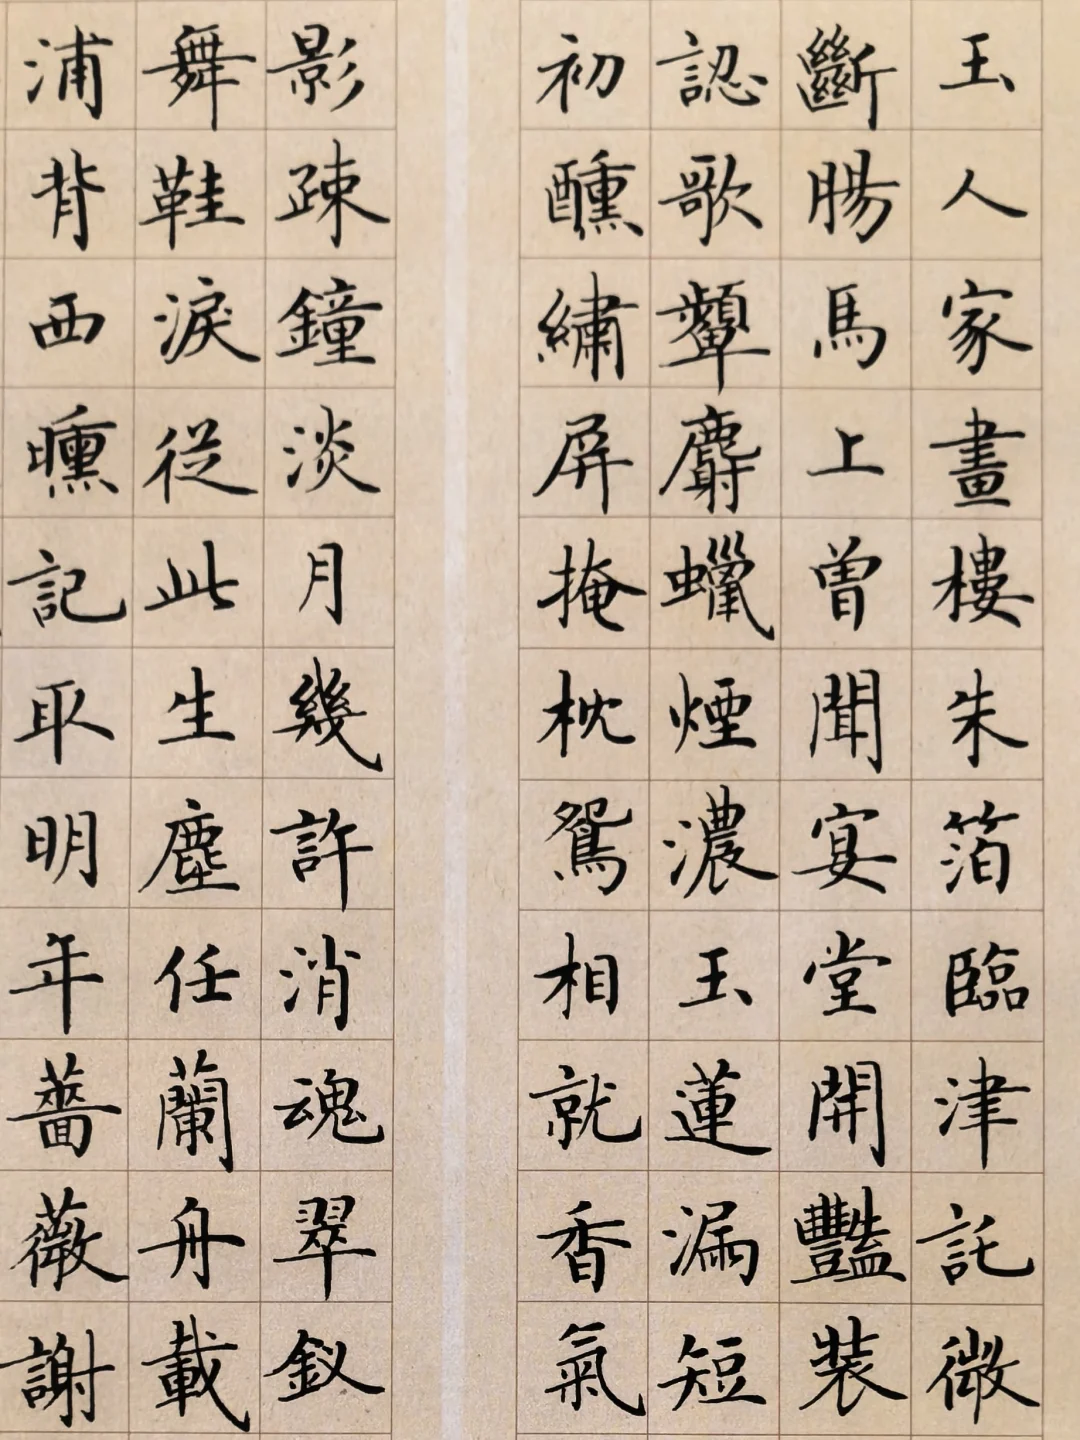 玉人家畫樓朱箔臨津託微
斷腸馬上曾聞宴堂開豔裝
認歌顰麝蠟煙濃玉蓮漏短
初醺繡屏掩枕鴛相就香氣
影疎鐘淡月幾許消魂翠釵
舞鞋淚從此生塵任蘭舟載
浦背西曛記取明年薔薇謝